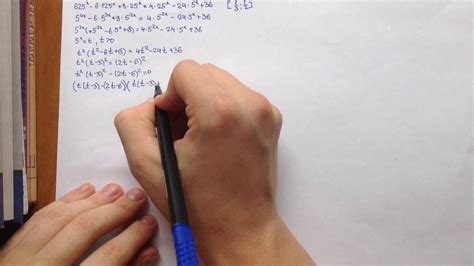 625ˣ - 6·125ˣ + 9·25ˣ = 4·25ˣ - 24·5ˣ + 36
5⁴ˣ - 6·5³ˣ + 9·5²ˣ = 4·5²ˣ - 24·5ˣ + 36
5²ˣ(5²ˣ - 6·5ˣ + 9) = 4·5²ˣ - 24·5ˣ + 36
5ˣ = t, t > 0
t²(t² - 6t + 9) = 4t² - 24t + 36
t²(t-3)² = (2t-6)²
t²(t-3)² - (2t-6)² = 0
(t(t-3) - (2t-6))(t(t-3)